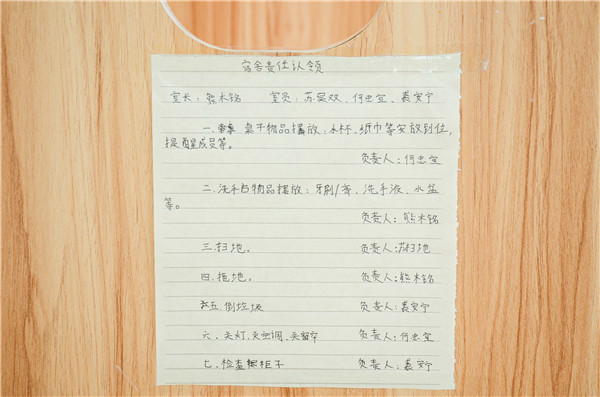 宿舍责任认领
室长：熊木铭 室员：苏奕双、何忠宜、聂安宁
一、桌子物品摆放：水杯、纸巾等安放到位，
提醒成员等。
负责人：何忠宜
二、洗手台物品摆放：牙刷/膏、洗手液、水盆
等。
负责人：熊木铭
三、扫地。 负责人：苏扫地
四、拖地。 负责人：熊木铭
五、倒垃圾 负责人：聂安宁
六、关灯、关空调、关窗帘 负责人：何忠宜
七、检查柜子 负责人：聂安宁